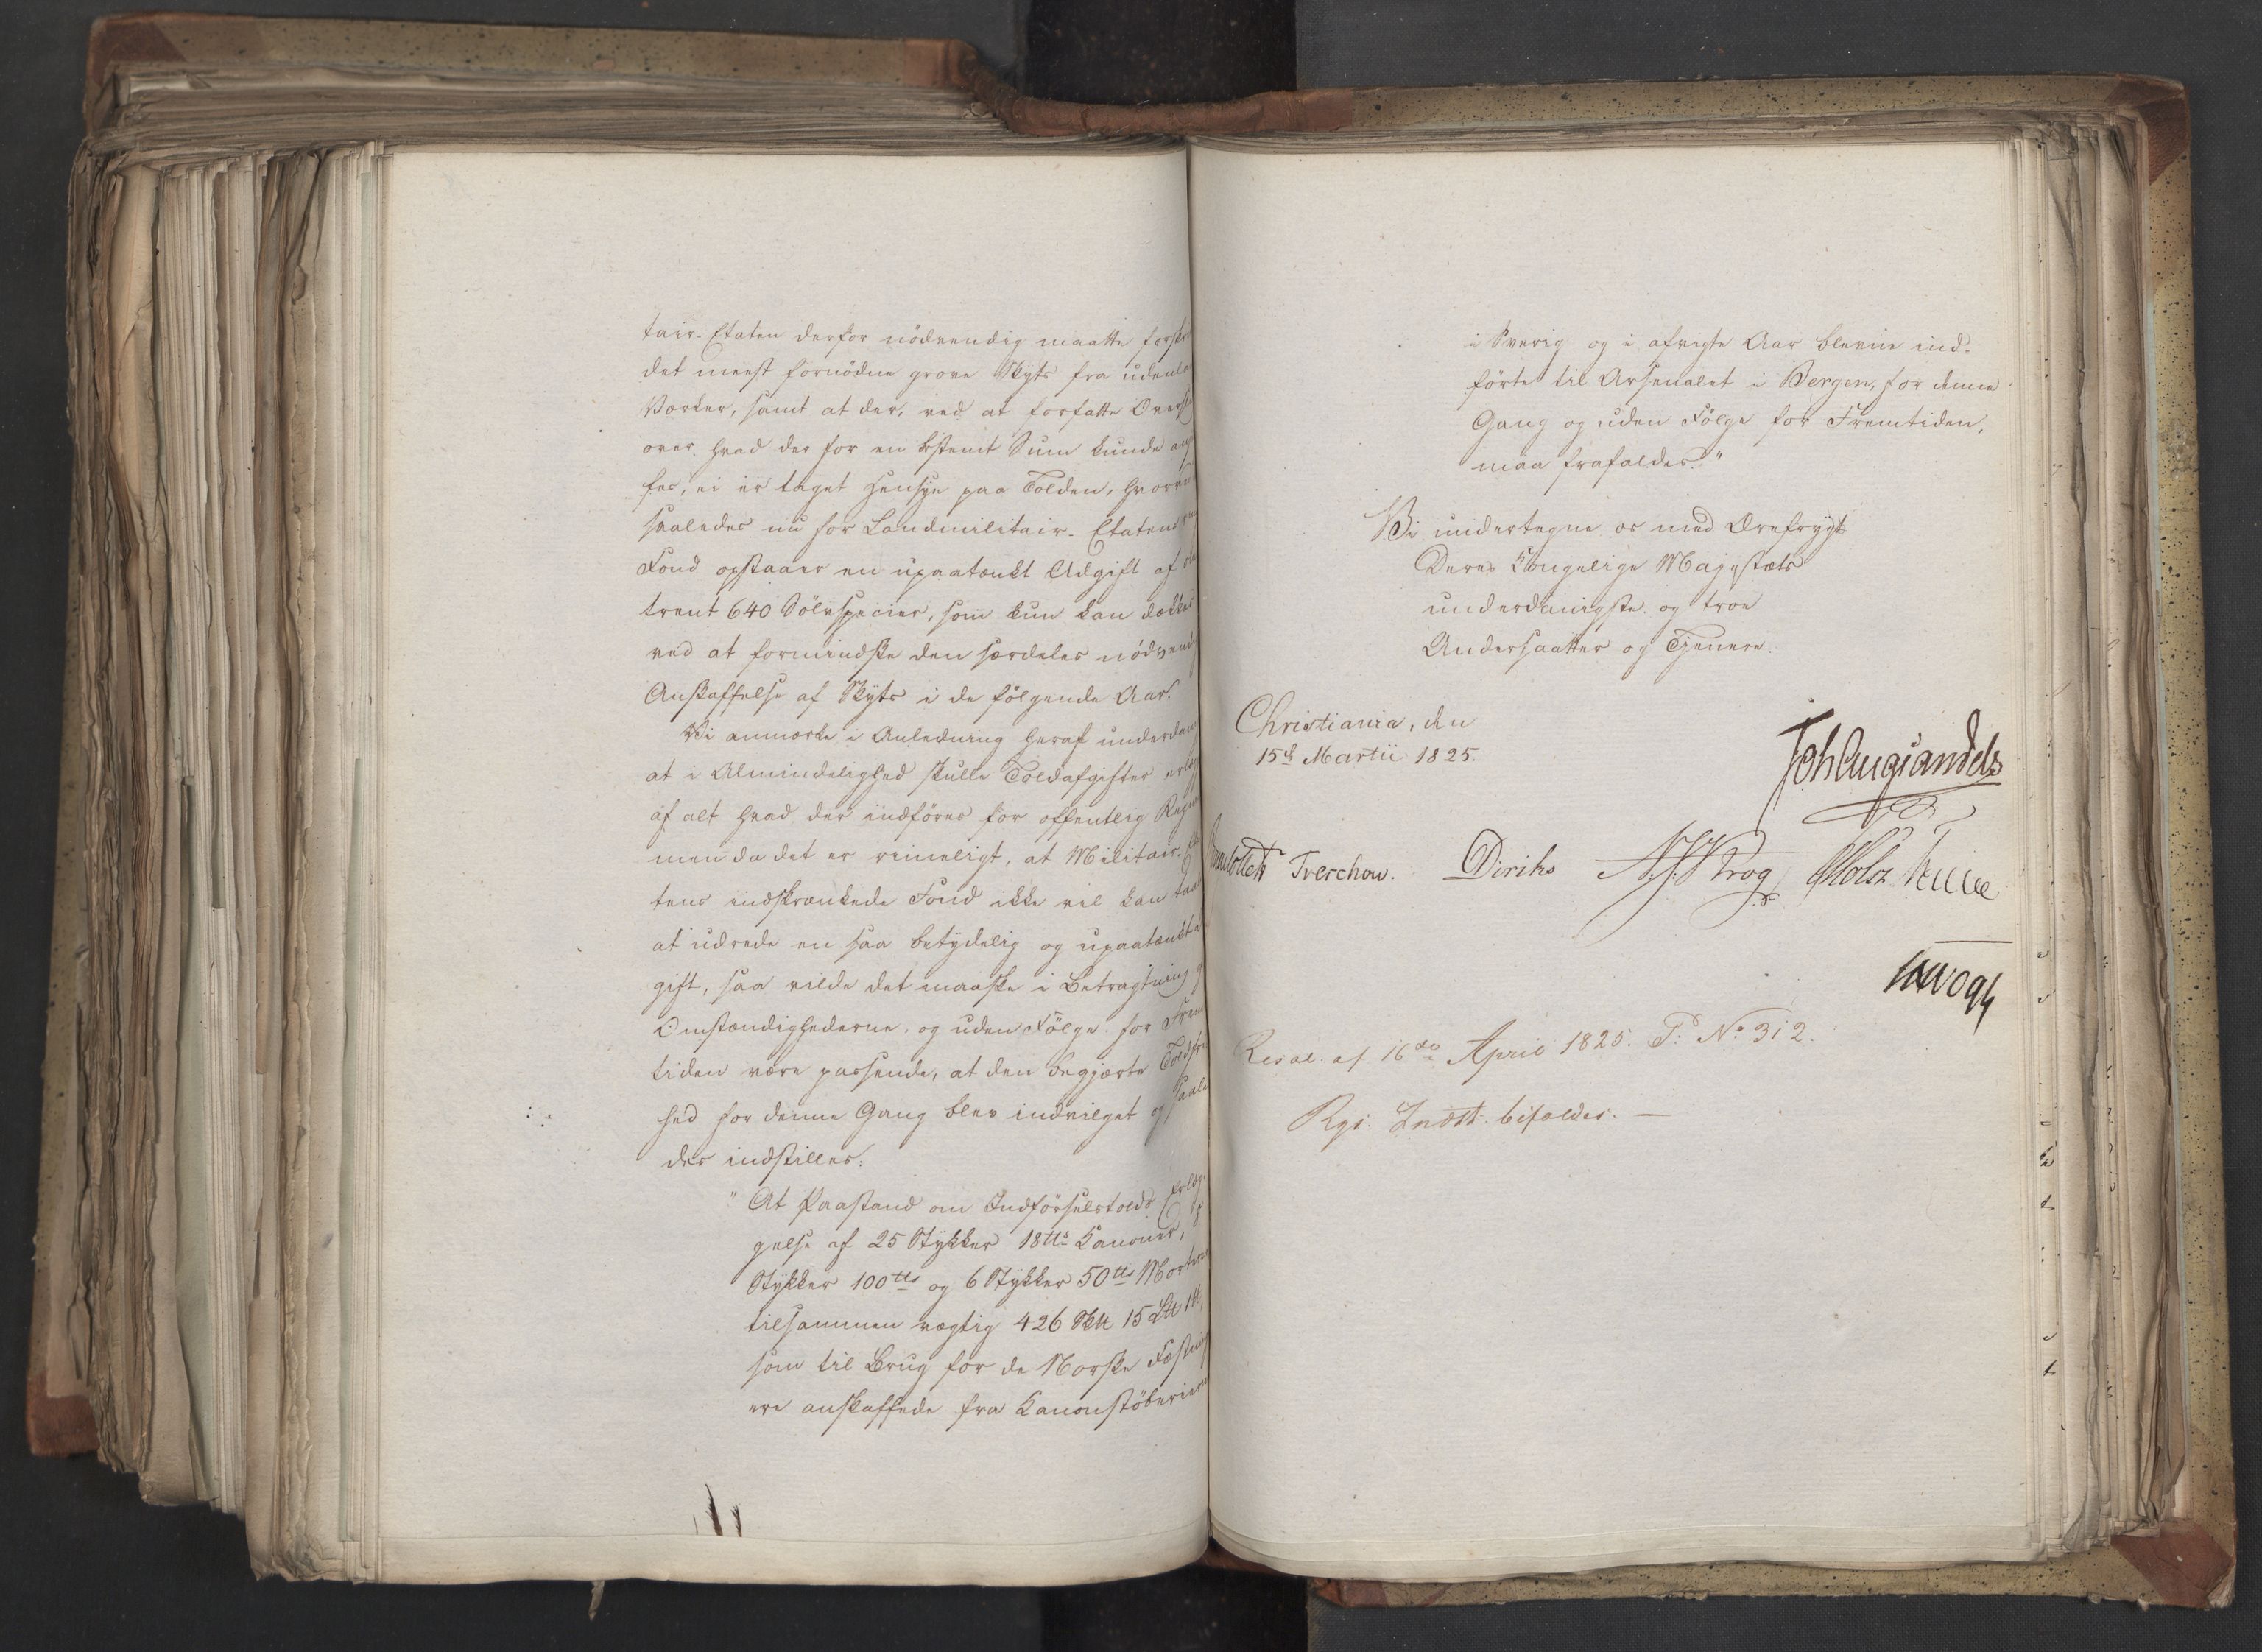 tair-Etaten derfor nödvendig maatte forskr
det meest fornödne grove Skyts fra udenla
Værker, samt at der, ved at forfatte Overs
over hvad der for en bestemt Sum kunde
fes, ei er taget Hensyn paa Tolden, hvorved
saaledes nu for Landmilitair-Etatens
Fond opstaaer en upaatænkt Udgift af
trent 640 Sölvspecier, som kun kan dækkes
ved at formindske den særdeles nödvend
Anskaffelse af Skyts i de fölgende Aar.
Vi anmærke i Anledning heraf underdan
at i Almindelighed skulle Toldafgifter erlæg
af alt hvad der indföres for offentlig Regn
men da det er rimeligt, at Militair-Eta
tens indskrænkede Fond ikke vel kan taa
at udrede en saa betydelig og upaatænkt
gift, saa vilde det maaske i Betragtning
Omstændighederne, og uden Fölge for Frem
tiden være passende, at den begjærte Toldfri
hed for denne Gang blev indvilget og saale
des indstilles:
" At Paastand om Indförselstolds Erlæg-
gelse af 25 Stykker 18 ℔s Kanoner,
Stykker 100 ℔s og 6 Stykker 50 ℔s Morterer
tilsammen vægtig 426 Sk℔ 15 L℔ 1℔,
som til Brug for de Norske Fæstning
ere anskaffede fra Kanonstöberierne
i Sverig og i afvigte Aar blevne ind-
förte til Arsenalet i Bergen, for denne
Gang og uden Fölge for Fremtiden,
maa frafaldes."
Vi undertegne os med Ærefrygt
Deres Kongelige Majestæts
underdanigste og troe
Undersaatter og Tjenere.
Christiania, den
15de Martii 1825.
Joh Aug Sandels
Collett Treschow. Diriks N. J. Krog P Holst Fasting
JH Vogt
Resol. af 16de April 1825. P. No 312.
Rgs. Indst. bifaldes. —